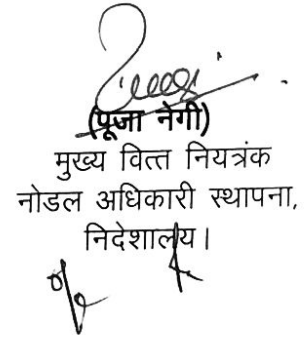 (पूजा नेगी)
मुख्य वित्त नियत्रंक
नोडल अधिकारी स्थापना,
निदेशालय।